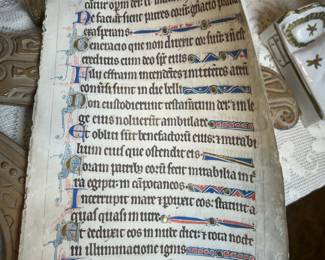 Ne fiant sicut patres eorum gñacio praua
exasperans
Generacio que non direxit cor suum et
creditus cum deo sps eius
Filij effram intendētes et mittētes arcū
conũsi sunt in die belli
Non custodierunt testamētum dei et in le
ge eius noluerūt ambulare
Et obliti sūt benefactorū eius et mirabi
lium eius que ostendit eis
Coram patribȝ eorū fecit mirabilia in t
ra egipti in campo taneos
Interrupit mare et pduxit eos statuit a
quas quasi in utre
Et deduxit eos in nube diei et tota nocte
in illuminacione ignis